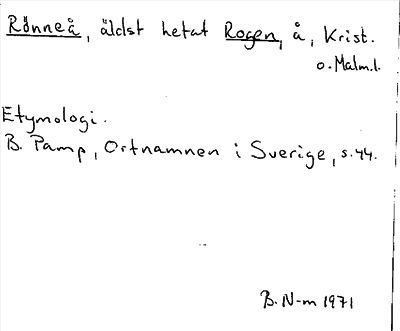 Rönneå, äldst hetat Rogen, å, Krist.
o. Malm.l.
Etymologi.
B. Pamp, Ortnamnen i Sverige, s. 44.
B. N-m 1971